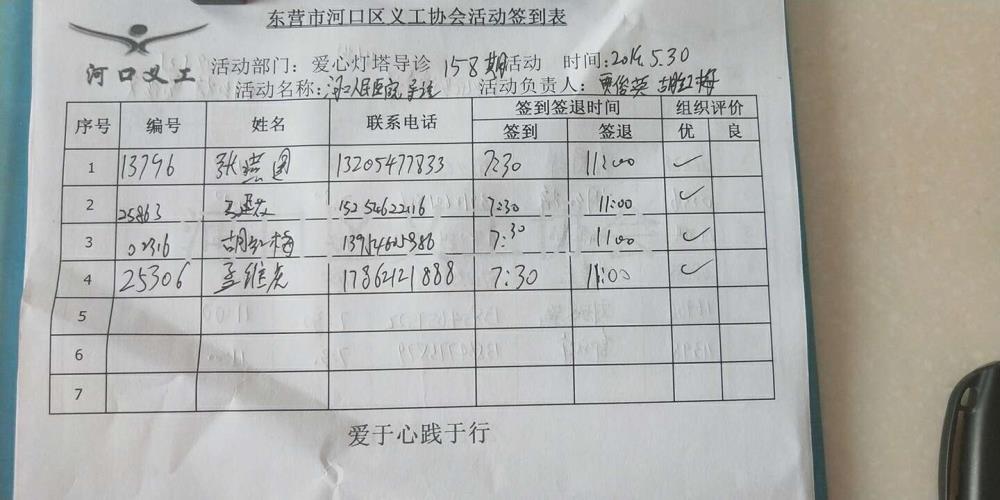 东营市河口区义工协会活动签到表
河口义工
活动部门：爱心灯塔导诊 158期活动 时间:2019.5.30
活动名称:河口人民医院导诊 活动负责人:贾俊英 胡红梅
序号 编号 姓名 联系电话 签到签退时间 组织评价
签到 签退 优 良
1 13796 张 13205477833 7:30 11:00 ✓
2 25863 15254622116 7:30 11:00 ✓
3 02316 胡红梅 13954605986 7:30 11:00 ✓
4 25306 孟维虎 17862121888 7:30 11:00 ✓
5
6
7
爱于心践于行